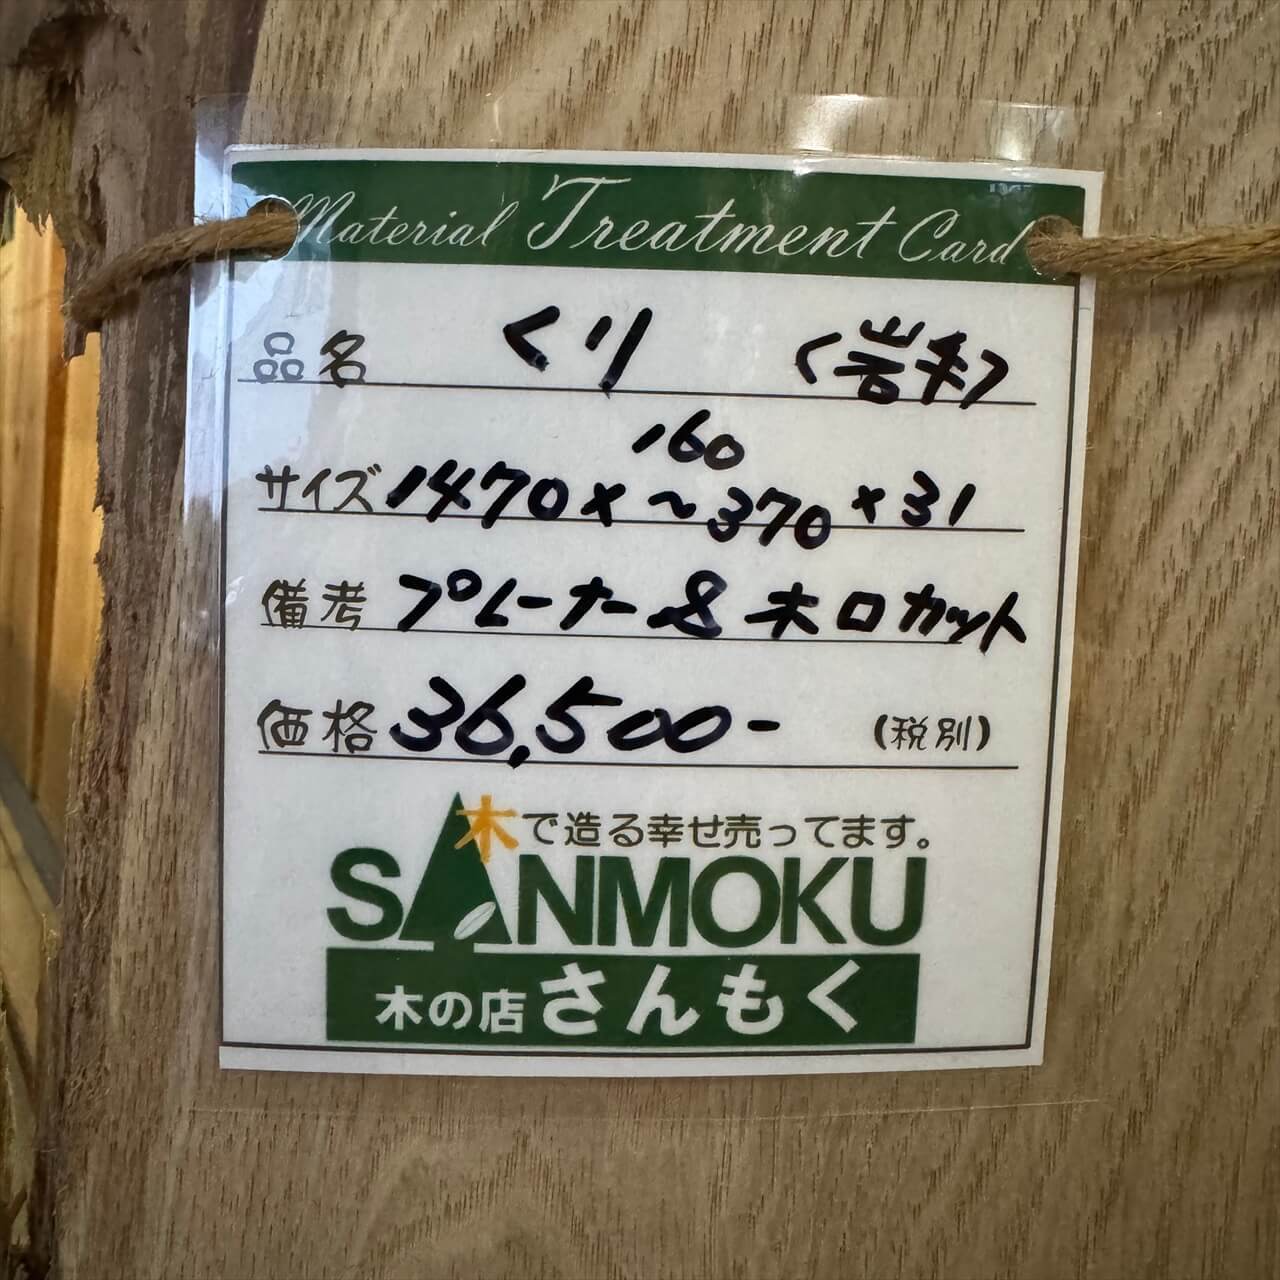 Material Treatment Card
品名 くり (岩手)
160
サイズ 1470×~370×31
備考 プレーナー&木口カット
価格 36,500- (税別)
木で造る幸せ売ってます。
SANMOKU
木の店さんもく